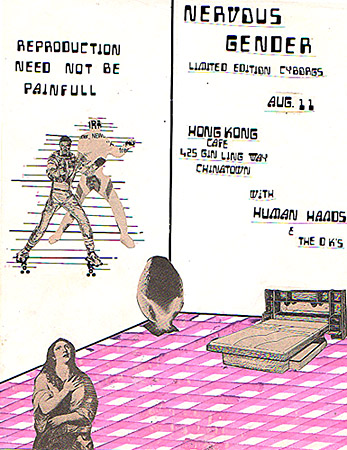 REPRODUCTION
NEED NOT BE
PAINFULL
IRA
NERVOUS
GENDER
LIMITED EDITION CYBORGS
AUG. 11
HONG KONG
CAFE
425 GIN LING WAY
CHINATOWN
WITH
HUMAN HANDS
& THE D K'S